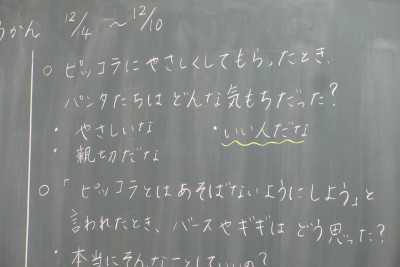 うかん 12/4 〜 12/10
○ ピッコラにやさしくしてもらったとき、
パンタたちは どんな気もちだった?
・ やさしいな ・いい人だな
・ 親切だな
○ 「ピッコラとはあそばないようにしよう」と
言われたとき、バースやギギは どう思った?
・ 本当にそんなことしていいの?